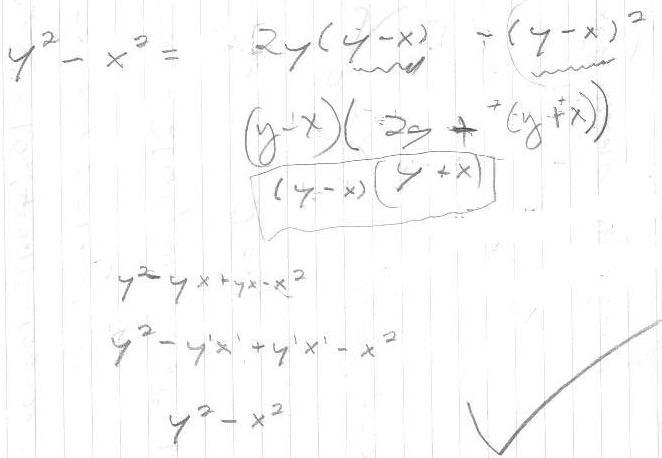 y² - x² = 2y(y-x) - (y-x)²
(y-x)(2y + ⁺(y+x))
(y-x)(y+x)
y² - yx + yx - x²
y² - y'x' + y'x' - x²
y² - x²